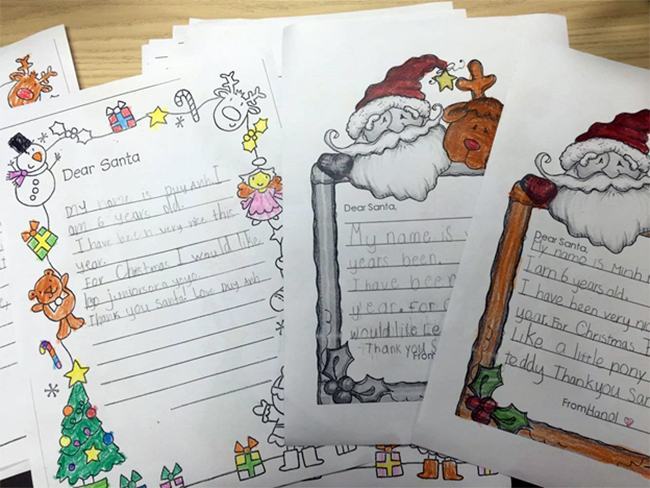 Dear Santa
my name is Duy Anh I
am 6 years old.
I have been very nice this
year.
For Christmas I would like.
lego juniors or a yoyo.
Thank you santa! Love Duy Anh
Dear Santa,
My name is
years been.
I have been
year. For
would like Le
Thank you S
From
Dear Santa,
My name is Minh
I am 6 years old.
I have been very nic
year. For Christmas I
Like a little pony
teddy Thankyou San
From Hanoi